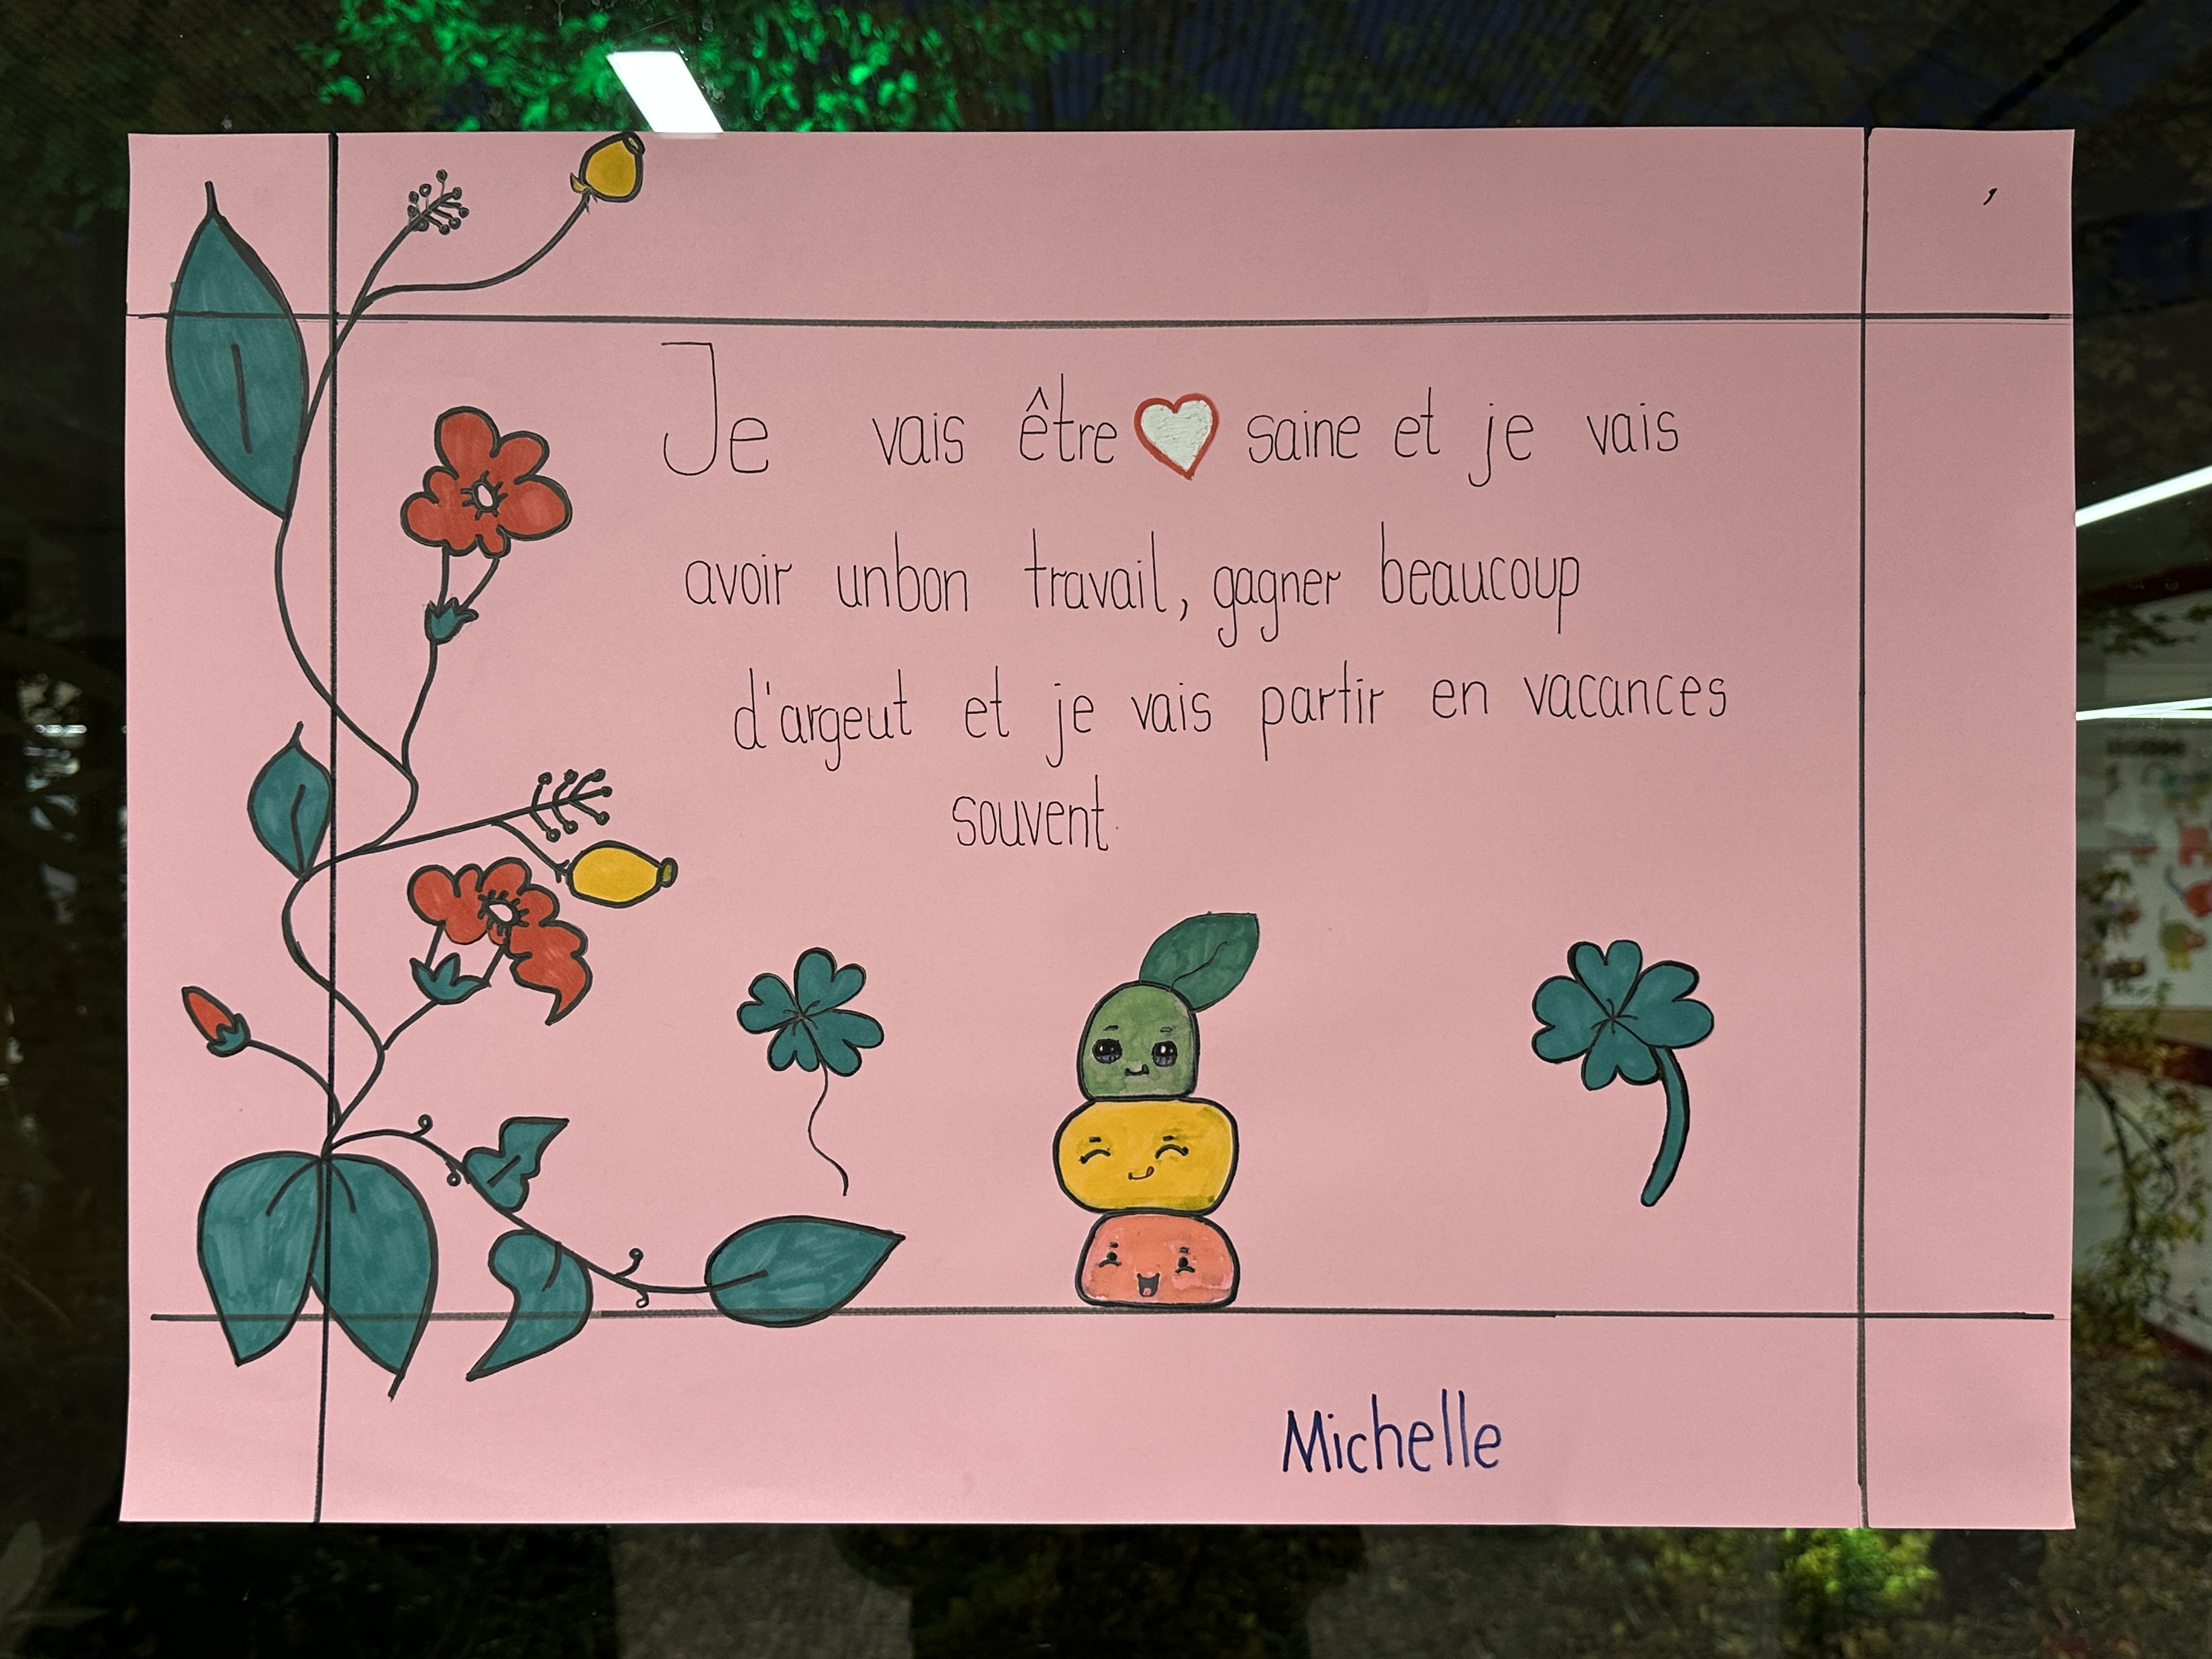 Je vais être saine et je vais
avoir unbon travail, gagner beaucoup
d'argeut et je vais partir en vacances
souvent.
Michelle